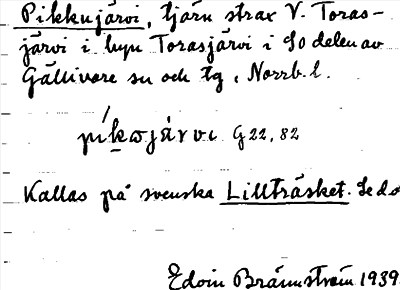 Pikkujärvi, tjärn strax V. Toras-
järvi i. byn Torasjärvi i SO delen av
Gällivare sn och tg, Norrb. l.
píkωjárvι G22, 82
Kallas på svenska Lillträsket. Se d.o
Edvin Brännström 1939.